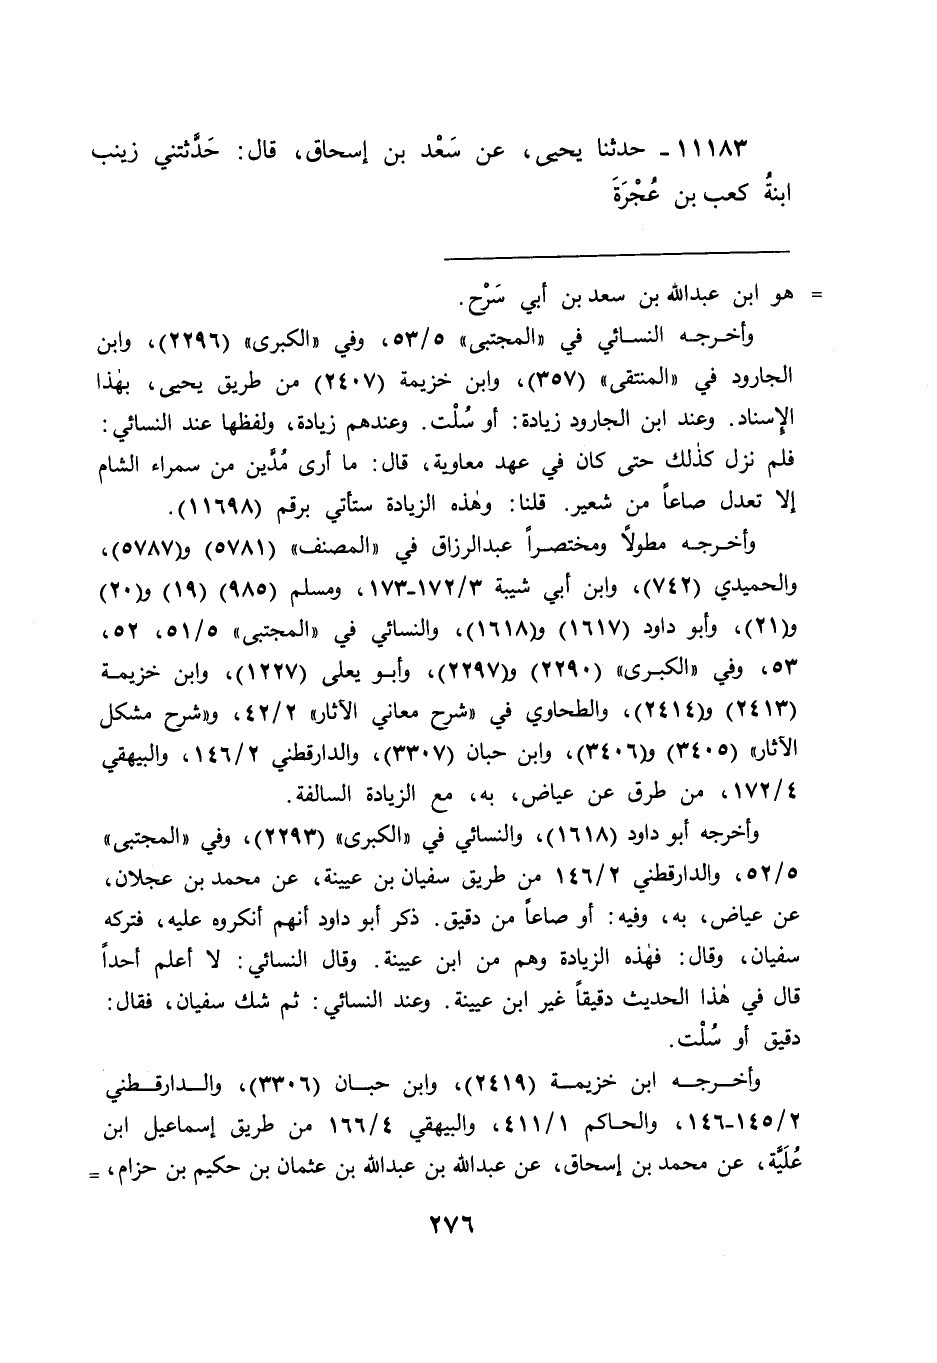 ١١١٨٣ ـ حدثنا يحيى، عن سَعْد بن إسحاق، قال: حَدَّثتني زينب
ابنةُ كعب بن عُجْرَةَ
= هو ابن عبدالله بن سعد بن أبي سَرْح.
وأخرجه النسائي في «المجتبى» ٥٣/٥، وفي «الكبرى» (٢٢٩٦)، وابن
الجارود في «المنتقى» (٣٥٧)، وابن خزيمة (٢٤٠٧) من طريق يحيى، بهٰذا
الإسناد. وعند ابن الجارود زيادة: أو سُلْت. وعندهم زيادة، ولفظها عند النسائي:
فلم نزل كذٰلك حتى كان في عهد معاوية، قال: ما أرى مُدَّين من سمراء الشام
إلا تعدل صاعاً من شعير. قلنا: وهٰذه الزيادة ستأتي برقم (١١٦٩٨).
وأخرجه مطولاً ومختصراً عبدالرزاق في «المصنف» (٥٧٨١) و(٥٧٨٧)،
والحميدي (٧٤٢)، وابن أبي شيبة ١٧٢/٣-١٧٣، ومسلم (٩٨٥) (١٩) و(٢٠)
و(٢١)، وأبو داود (١٦١٧) و(١٦١٨)، والنسائي في «المجتبى» ٥١/٥، ٥٢،
٥٣، وفي «الكبرى» (٢٢٩٠) و(٢٢٩٧)، وأبو يعلى (١٢٢٧)، وابن خزيمة
(٢٤١٣) و(٢٤١٤)، والطحاوي في «شرح معاني الآثار» ٤٢/٢، و«شرح مشكل
الآثار» (٣٤٠٥) و(٣٤٠٦)، وابن حبان (٣٣٠٧)، والدارقطني ١٤٦/٢، والبيهقي
١٧٢/٤، من طرق عن عياض، به، مع الزيادة السالفة.
وأخرجه أبو داود (١٦١٨)، والنسائي في «الكبرى» (٢٢٩٣)، وفي «المجتبى»
٥٢/٥، والدارقطني ١٤٦/٢ من طريق سفيان بن عيينة، عن محمد بن عجلان،
عن عياض، به، وفيه: أو صاعاً من دقيق. ذكر أبو داود أنهم أنكروه عليه، فتركه
سفيان، وقال: فهٰذه الزيادة وهم من ابن عيينة. وقال النسائي: لا أعلم أحداً
قال في هٰذا الحديث دقيقاً غير ابن عيينة. وعند النسائي: ثم شك سفيان، فقال:
دقيق أو سُلْت.
وأخرجه ابن خزيمة (٢٤١٩)، وابن حبان (٣٣٠٦)، والدارقطني
١٤٥/٢-١٤٦، والحاكم ٤١١/١، والبيهقي ١٦٦/٤ من طريق إسماعيل ابن
عُلَيَّة، عن محمد بن إسحاق، عن عبدالله بن عبدالله بن عثمان بن حكيم بن حزام، =
٢٧٦